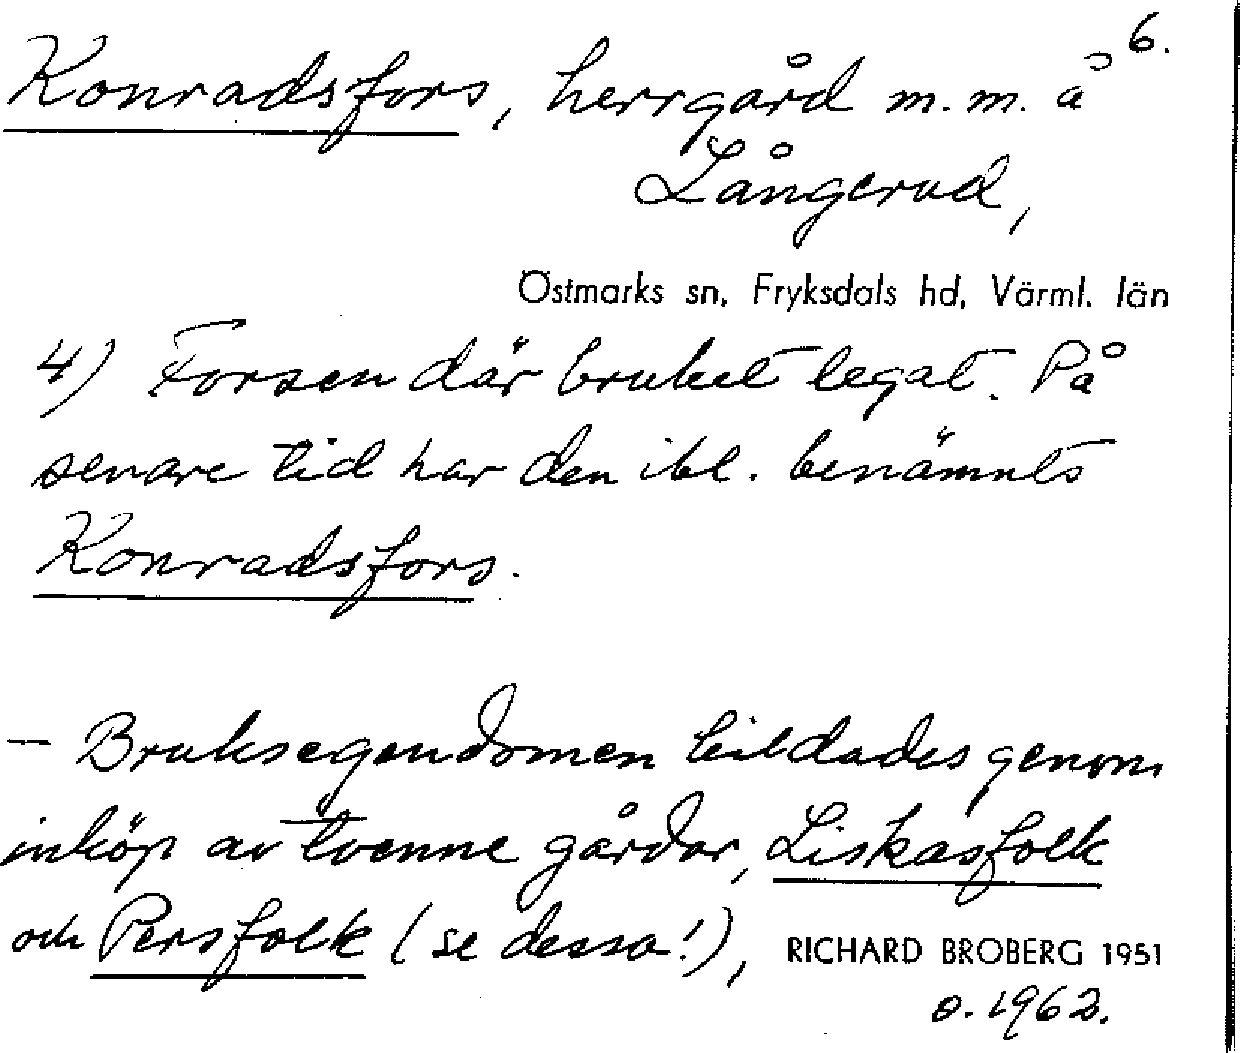 6.
Konradsfors, herrgård m.m. å
Långerud,
Östmarks sn, Fryksdals hd, Värml. län
4) Forsen där bruket legat. På
senare tid har den ibl. benämnts
Konradsfors.
— Bruksegendomen bildades genom
inköp av tvenne gårdar, Liskasfolk
och Persfolk (se dessa!),
RICHARD BROBERG 1951
o. 1962.